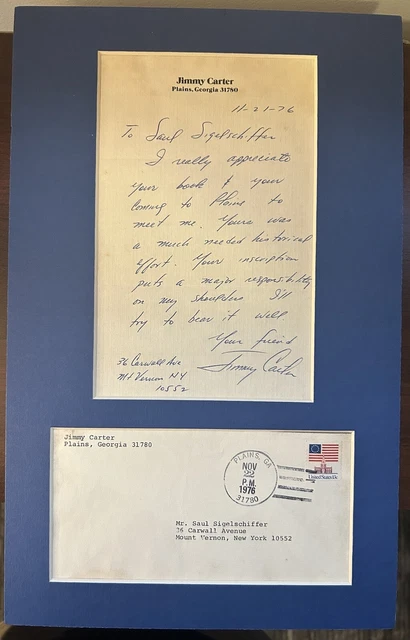 Jimmy Carter
Plains, Georgia 31780
11-21-76
To Saul Sigelschiffer
I really appreciate
your book & your
coming to Plains to
meet me. Yours was
a much needed historical
effort. Your inscription
puts a major responsibility
on my shoulders. I'll
try to bear it well
Your friend
Jimmy Carter
36 Carwall Ave
Mt Vernon NY
10552
Jimmy Carter
Plains, Georgia 31780
PLAINS, GA
NOV
22
P.M.
1976
31780
United States 13c
Mr. Saul Sigelschiffer
36 Carwall Avenue
Mount Vernon, New York 10552